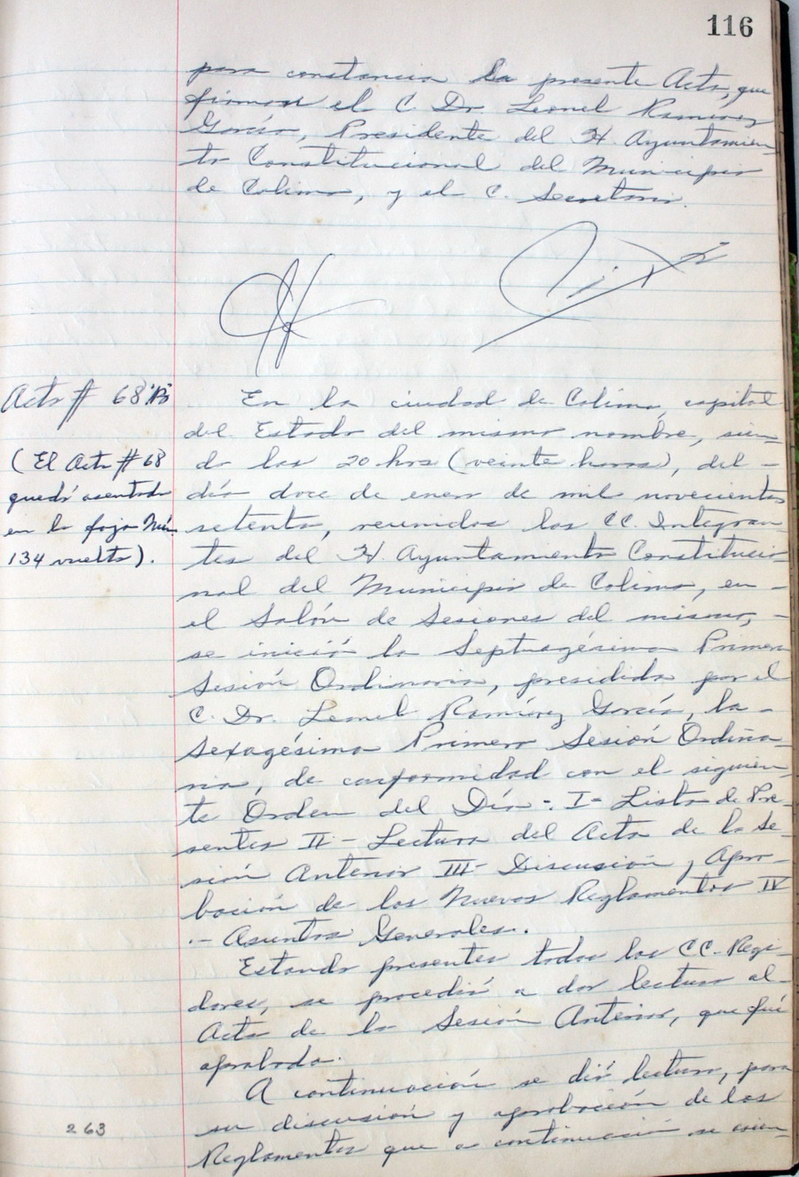 116
para constancia la presente Acta, que
firman el C. Dr. Leonel Ramírez
García, Presidente del H. Ayuntamien-
to Constitucional del Municipio
de Colima, y el C. Secretario.
Acta # 68 Bis
(El Acta # 68
quedó asentada
en la foja Núm.
134 vuelta).
En la ciudad de Colima, capital
del Estado del mismo nombre, sien-
do las 20 hrs (veinte horas), del -
día doce de enero de mil novecientos
setenta, reunidos los CC. Integran
tes del H. Ayuntamiento Constitucio-
nal del Municipio de Colima, en -
el Salón de Sesiones del mismo, -
se inició la Septuagésima Primera
Sesión Ordinaria, presidida por el
C. Dr. Leonel Ramírez García, la -
Sexagésima Primera Sesión Ordina-
ria, de conformidad con el siguien-
te Orden del Día. I- Lista de Pre-
sentes II - Lectura del Acta de la Se-
sión Anterior III- Discusión y Apro-
bación de los Nuevos Reglamentos IV
.- Asuntos Generales.
Estando presentes todos los CC. Regi-
dores, se procedió a dar lectura al
Acta de la Sesión Anterior, que fué
aprobada.
A continuación se dió lectura, para
su discusión y aprobación de los
Reglamentos que a continuación se asien-
263